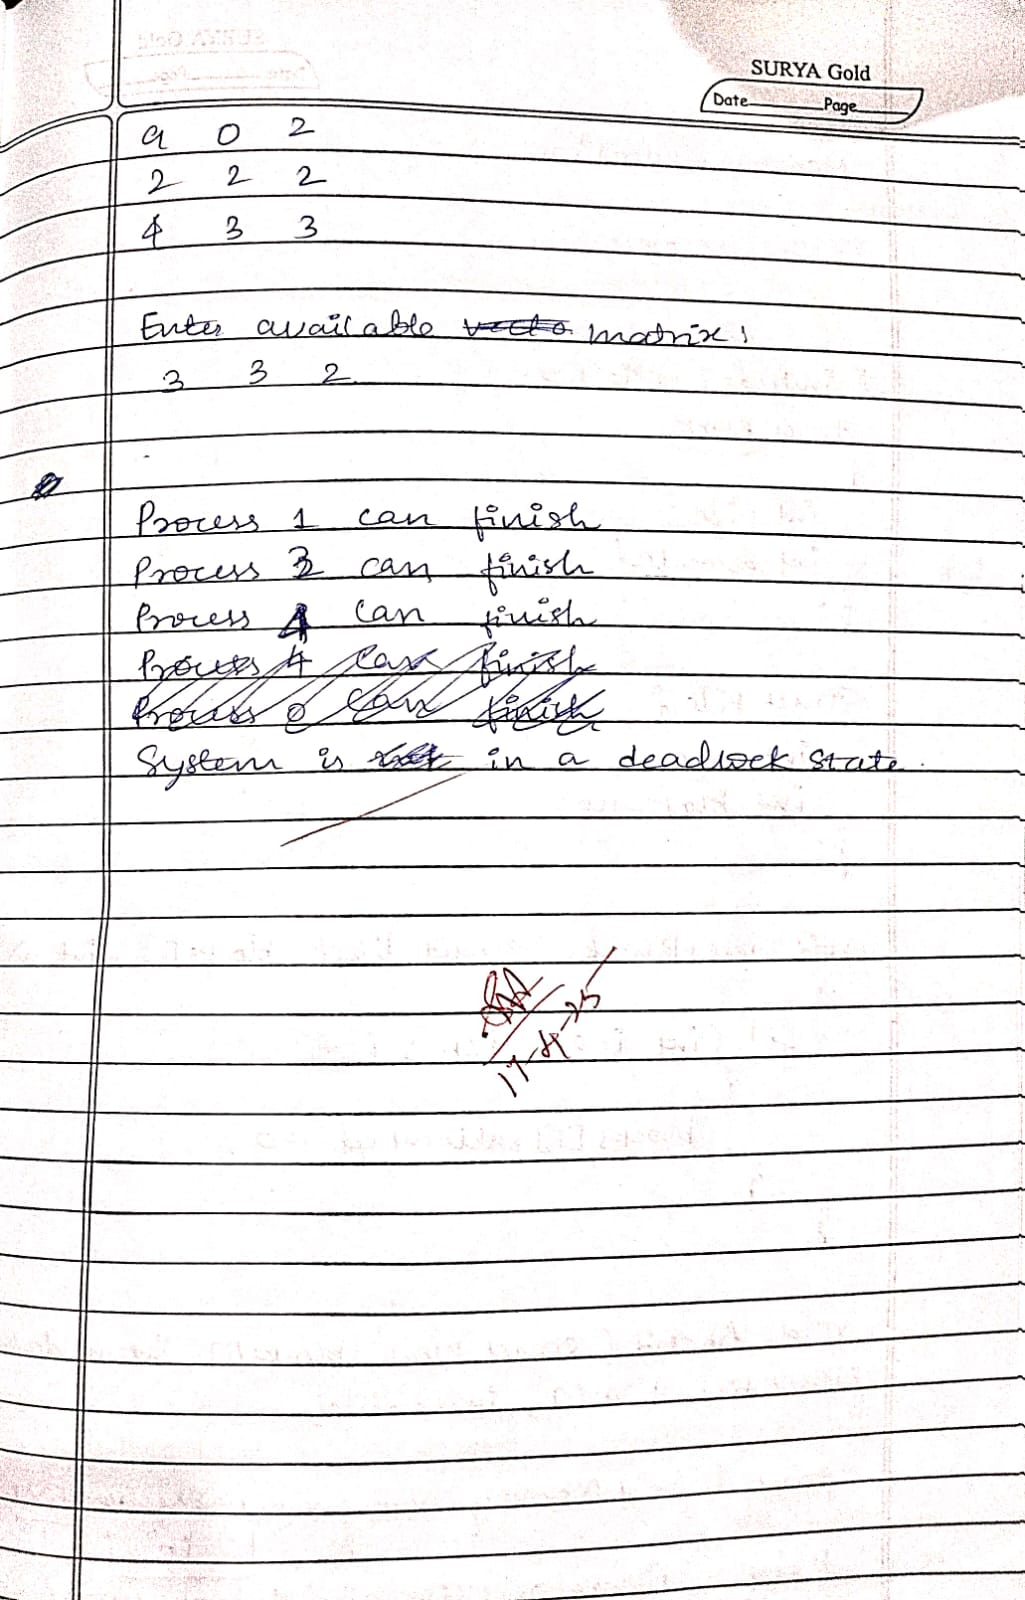 SURYA Gold
Date Page
9 0 2
2 2 2
4 3 3
Enter available vecto matrix:
3 3 2
Process 1 can finish
Process 3 can finish
Process 4 can finish
Process 4 can finish
Process 0 can finish
System is in a deadlock state.
17-4-25